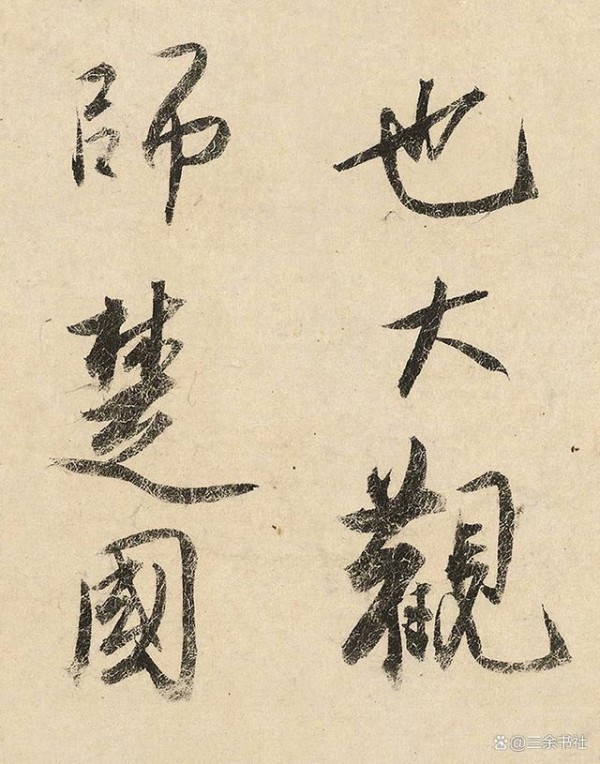 也大觀
師楚國
@二余书社